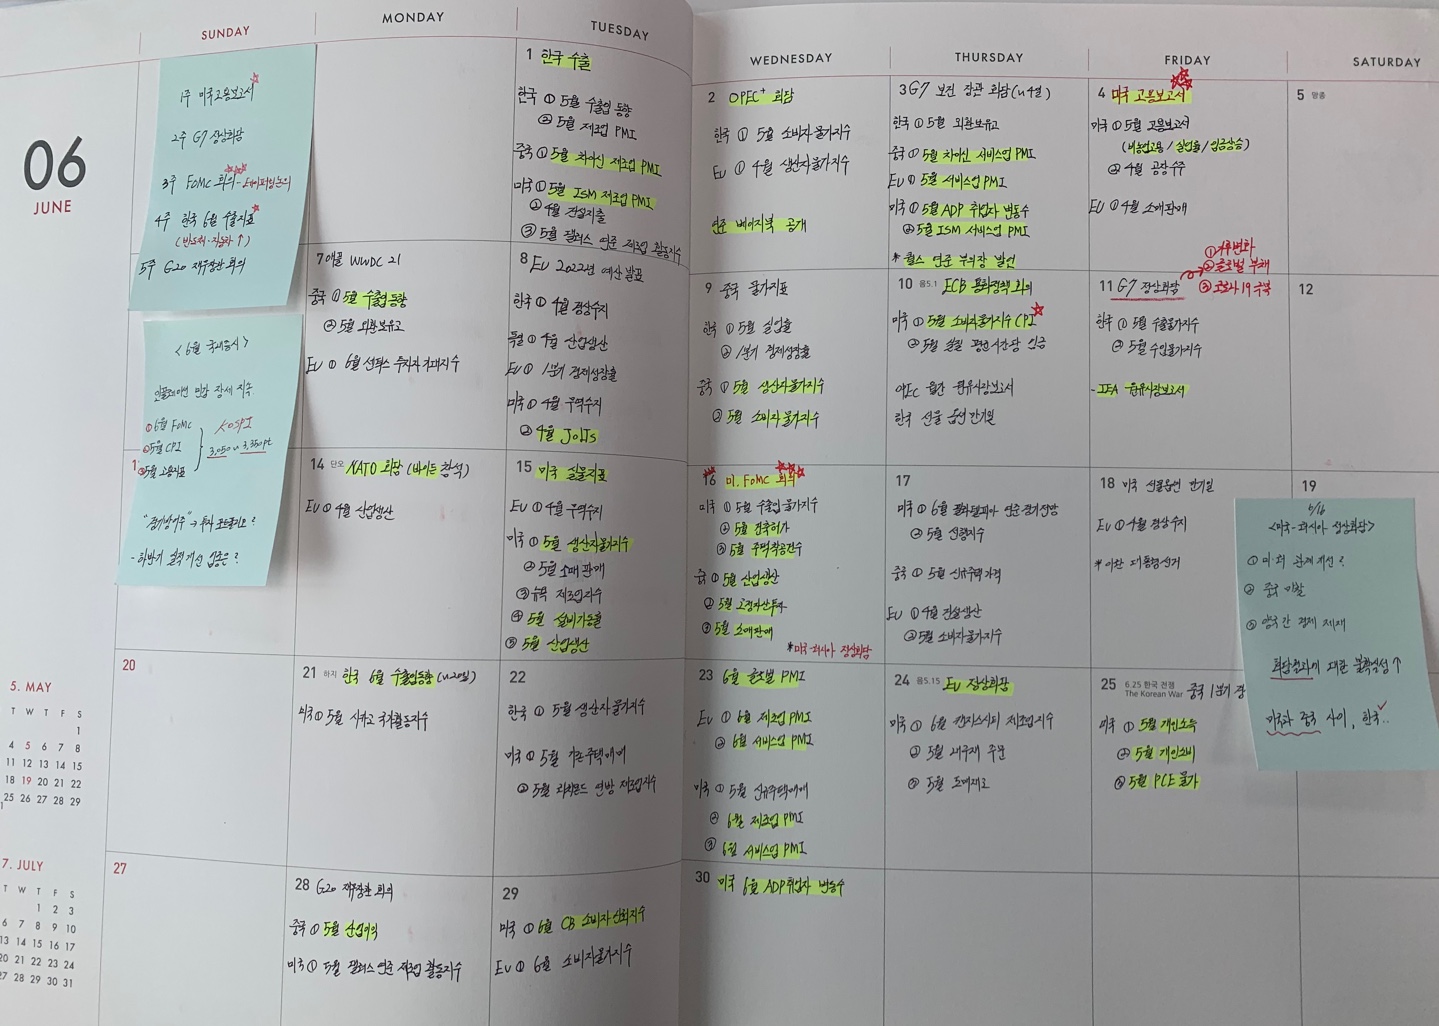 06
JUNE
SUNDAY
MONDAY
TUESDAY
WEDNESDAY
THURSDAY
FRIDAY
SATURDAY
1주 미국고용보고서
2주 G7 정상회담
3주 FOMC 회의 - 테이퍼링논의
4주 한국 6월 수출지표
(반도체·자동차 ↑)
5주 G20 재무장관 회의
<6월 국내증시>
인플레이션 민감 장세 지속.
①6월 FOMC
②5월 CPI
③5월 고용지표
KOSPI
3,050 ~ 3,350pt
"경기방어주" → 투자 포트폴리오?
- 하반기 실적개선 업종은?
1 한국 수출
한국 ① 5월 수출입 동향
② 5월 제조업 PMI
중국 ① 5월 차이신 제조업 PMI
미국 ① 5월 ISM 제조업 PMI
② 4월 건설지출
③ 5월 댈러스 연준 제조업 활동지수
2 OPEC+ 회담
한국 ① 5월 소비자물가지수
EU ① 4월 생산자물가지수
연준 베이지북 공개
3 G7 보건 장관 회담(~4일)
한국 ① 5월 외환보유고
중국 ① 5월 차이신 서비스업 PMI
EU ① 5월 서비스업 PMI
미국 ① 5월 ADP 취업자 변동수
② 5월 ISM 서비스업 PMI
* 퀄스 연준 부의장 발언
4 미국 고용보고서
미국 ① 5월 고용보고서
(비농업고용 / 실업률 / 임금상승)
② 4월 공장수주
EU ① 4월 소매판매
5 망종
7 애플 WWDC 21
중국 ① 5월 수출입 동향
② 5월 외환보유고
EU ① 6월 센틱스 투자자기대지수
8 EU 2022년 예산 발표
한국 ① 4월 경상수지
독일 ① 4월 산업생산
EU ① 1분기 경제성장률
미국 ① 4월 무역수지
② 4월 JOLTs
9 중국 물가지표
한국 ① 5월 실업률
② 1분기 경제성장률
중국 ① 5월 생산자물가지수
② 5월 소비자물가지수
10 음5.1 ECB 통화정책 회의
미국 ① 5월 소비자물가지수 CPI
② 5월 실질 평균시간당 임금
OPEC 월간 원유시장보고서
한국 선물 옵션 만기일
11 G7 정상회담
① 기후변화
② 글로벌 부채
③ 코로나19 극복
한국 ① 5월 수출물가지수
② 5월 수입물가지수
- IEA 원유시장보고서
12
1
14 단오 NATO 회담 (바이든 참석)
EU ① 4월 산업생산
15 미국 실물지표
EU ① 4월 무역수지
미국 ① 5월 생산자물가지수
② 5월 소매판매
③ 뉴욕 제조업지수
④ 5월 설비가동률
⑤ 5월 산업생산
16 미. FOMC 회의
미국 ① 5월 수출입물가지수
② 5월 건축허가
③ 5월 주택착공건수
중국 ① 5월 산업생산
② 5월 고정자산투자
③ 5월 소매판매
*미국-러시아 정상회담
17
미국 ① 6월 필라델피아 연준 경기전망
② 5월 선행지수
중국 ① 5월 신규주택가격
EU ① 4월 건설생산
② 5월 소비자물가지수
18 미국 선물옵션 만기일
EU ① 4월 경상수지
* 이란 대통령선거
19
<미국-러시아 정상회담>
① 미·러 관계개선?
② 중국 반발
③ 양국간 경제 제재
회담결과에 대한 불확실성 ↑
미국과 중국 사이, 한국..
20
21 하지 한국 6월 수출입동향(~20일)
미국 ① 5월 시카고 국가활동지수
22
한국 ① 5월 생산자물가지수
미국 ① 5월 기존주택매매
② 5월 리치몬드 연방 제조업지수
23 6월 글로벌 PMI
EU ① 6월 제조업 PMI
② 6월 서비스업 PMI
미국 ① 5월 신규주택매매
② 6월 제조업 PMI
③ 6월 서비스업 PMI
24 음5.15 EU 정상회담
미국 ① 6월 캔자스시티 제조업지수
② 5월 내구재 주문
③ 5월 도매재고
25 6.25 한국 전쟁
The Korean War 중국 1분기 경
미국 ① 5월 개인소득
② 5월 개인소비
③ 5월 PCE 물가
27
28 G20 재무장관 회의
중국 ① 5월 산업이익
미국 ① 5월 댈러스 연준 제조업 활동지수
29
미국 ① 6월 CB 소비자신뢰지수
EU ① 6월 소비자물가지수
30 미국 6월 ADP취업자 변동수
5. MAY
T W T F S
1
4 5 6 7 8
11 12 13 14 15
18 19 20 21 22
25 26 27 28 29
7. JULY
T W T F S
1 2 3
6 7 8 9 10
13 14 15 16 17
20 21 22 23 24
27 28 29 30 31